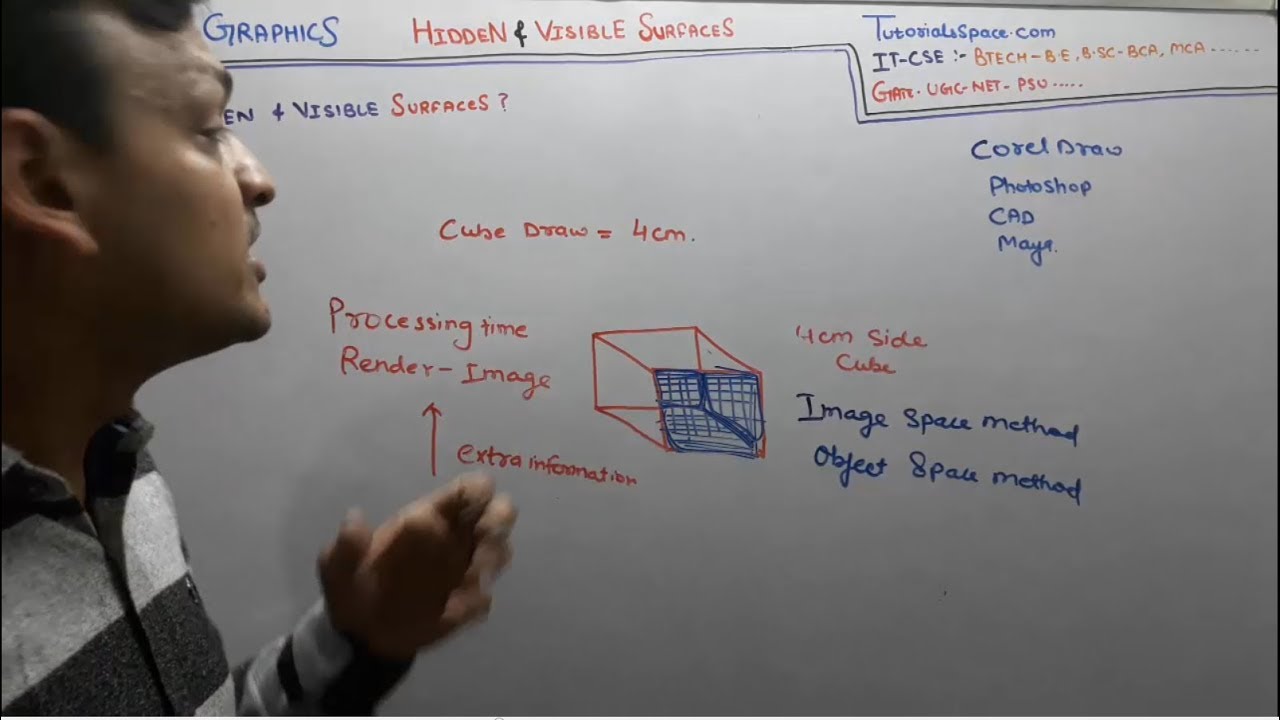 GRAPHICS
HIDDEN & VISIBLE SURFACES
TutorialsSpace.com
IT-CSE :- BTECH-B.E, B.SC-BCA, MCA ......
GATE. UGC-NET- PSU .....
EN & VISIBLE SURFACES ?
Corel Draw
Photoshop
CAD
Maya.
Cube Draw = 4cm.
Processing time
Render-Image
extra information
4cm Side
Cube
Image Space method
Object Space method